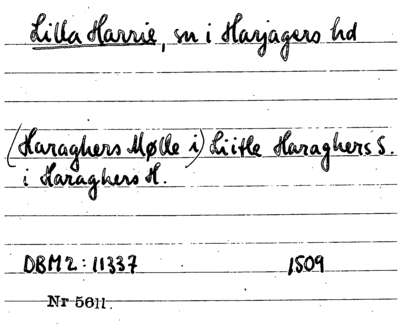 Lilla Harrie, sn i Harjagers hd
(Haraghers Mølle i) Liitle Haraghers S.
i Haraghers H.
DBM2:11337 1509
Nr 5611.